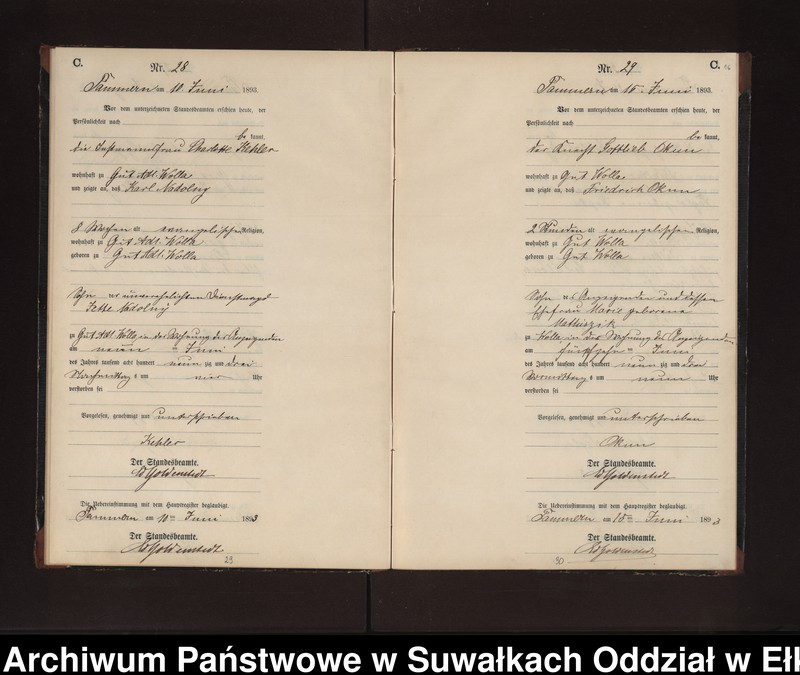 C.
Nr. 28
am 10 Juni 1893.
Vor dem unterzeichneten Standesbeamten erschien heute, der
Persönlichkeit nach
be kannt,
die Instmannsfrau Charlotte Kehler
wohnhaft zu Gut Adl. Wolla
und zeigte an, daß Karl Nadolny
8 Wochen alt evangelischer Religion,
wohnhaft zu Gut Adl. Wolla
geboren zu Gut Adl. Wolla
Sohn der unverehelichten Dienstmagd
Jette Nadolny
zu Gut Adl. Wolla, in der Wohnung des Anzeigenden
am neun ten Juni
des Jahres tausend acht hundert neun zig und drei
Nachmittags um vier Uhr
verstorben sei
Vorgelesen, genehmigt und unterschrieben
Kehler
Der Standesbeamte.
Die Uebereinstimmung mit dem Hauptregister beglaubigt.
am 10ten Juni 1893
Der Standesbeamte.
29
Nr. 29
C.
am 15. Juni 1893.
Vor dem unterzeichneten Standesbeamten erschien heute, der
Persönlichkeit nach
be kannt,
der Knecht Gottlieb Okun
wohnhaft zu Gut Wolla
und zeigte an, daß Friedrich Okun
2 Stunden alt evangelischer Religion,
wohnhaft zu Gut Wolla
geboren zu Gut Wolla
Sohn des Anzeigenden und dessen
Ehefrau Marie geborene
zu Wolla, in der Wohnung des Anzeigenden
am fünfzehn ten Juni
des Jahres tausend acht hundert neun zig und drei
Vormittags um neun Uhr
verstorben sei
Vorgelesen, genehmigt und unterschrieben
Okun
Der Standesbeamte.
Die Uebereinstimmung mit dem Hauptregister beglaubigt.
am 15ten Juni 1893
Der Standesbeamte.
30
Archiwum Państwowe w Suwałkach Oddział w Ełk